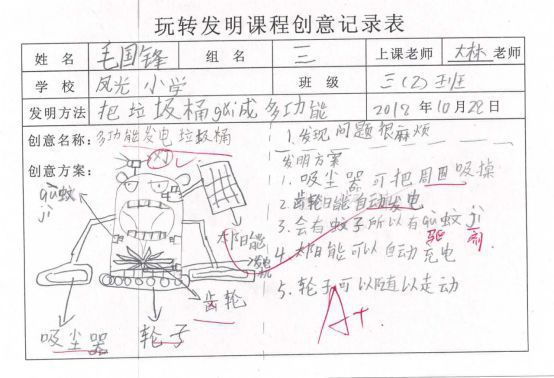 玩转发明课程创意记录表
姓 名 毛国锋 组 名 三 上课老师 大林 老师
学 校 凤光小学 班 级 三(2)班
发明方法 把垃圾桶gǎi成多功能 2018 年 10 月 28 日
创意名称: 多功能发电垃圾桶
创意方案:
gū蚊
ji
太阳能
发电机
齿轮
吸尘器
轮子
1. 发现问题很麻烦
发明方案
1. 吸尘器可把周围吸掉
2. 齿轮能自动发电
3. 会有蚊子所以有gū蚊ji
驱 剂
4. 太阳能可以自动充电
5. 轮子可以随以走动
A+